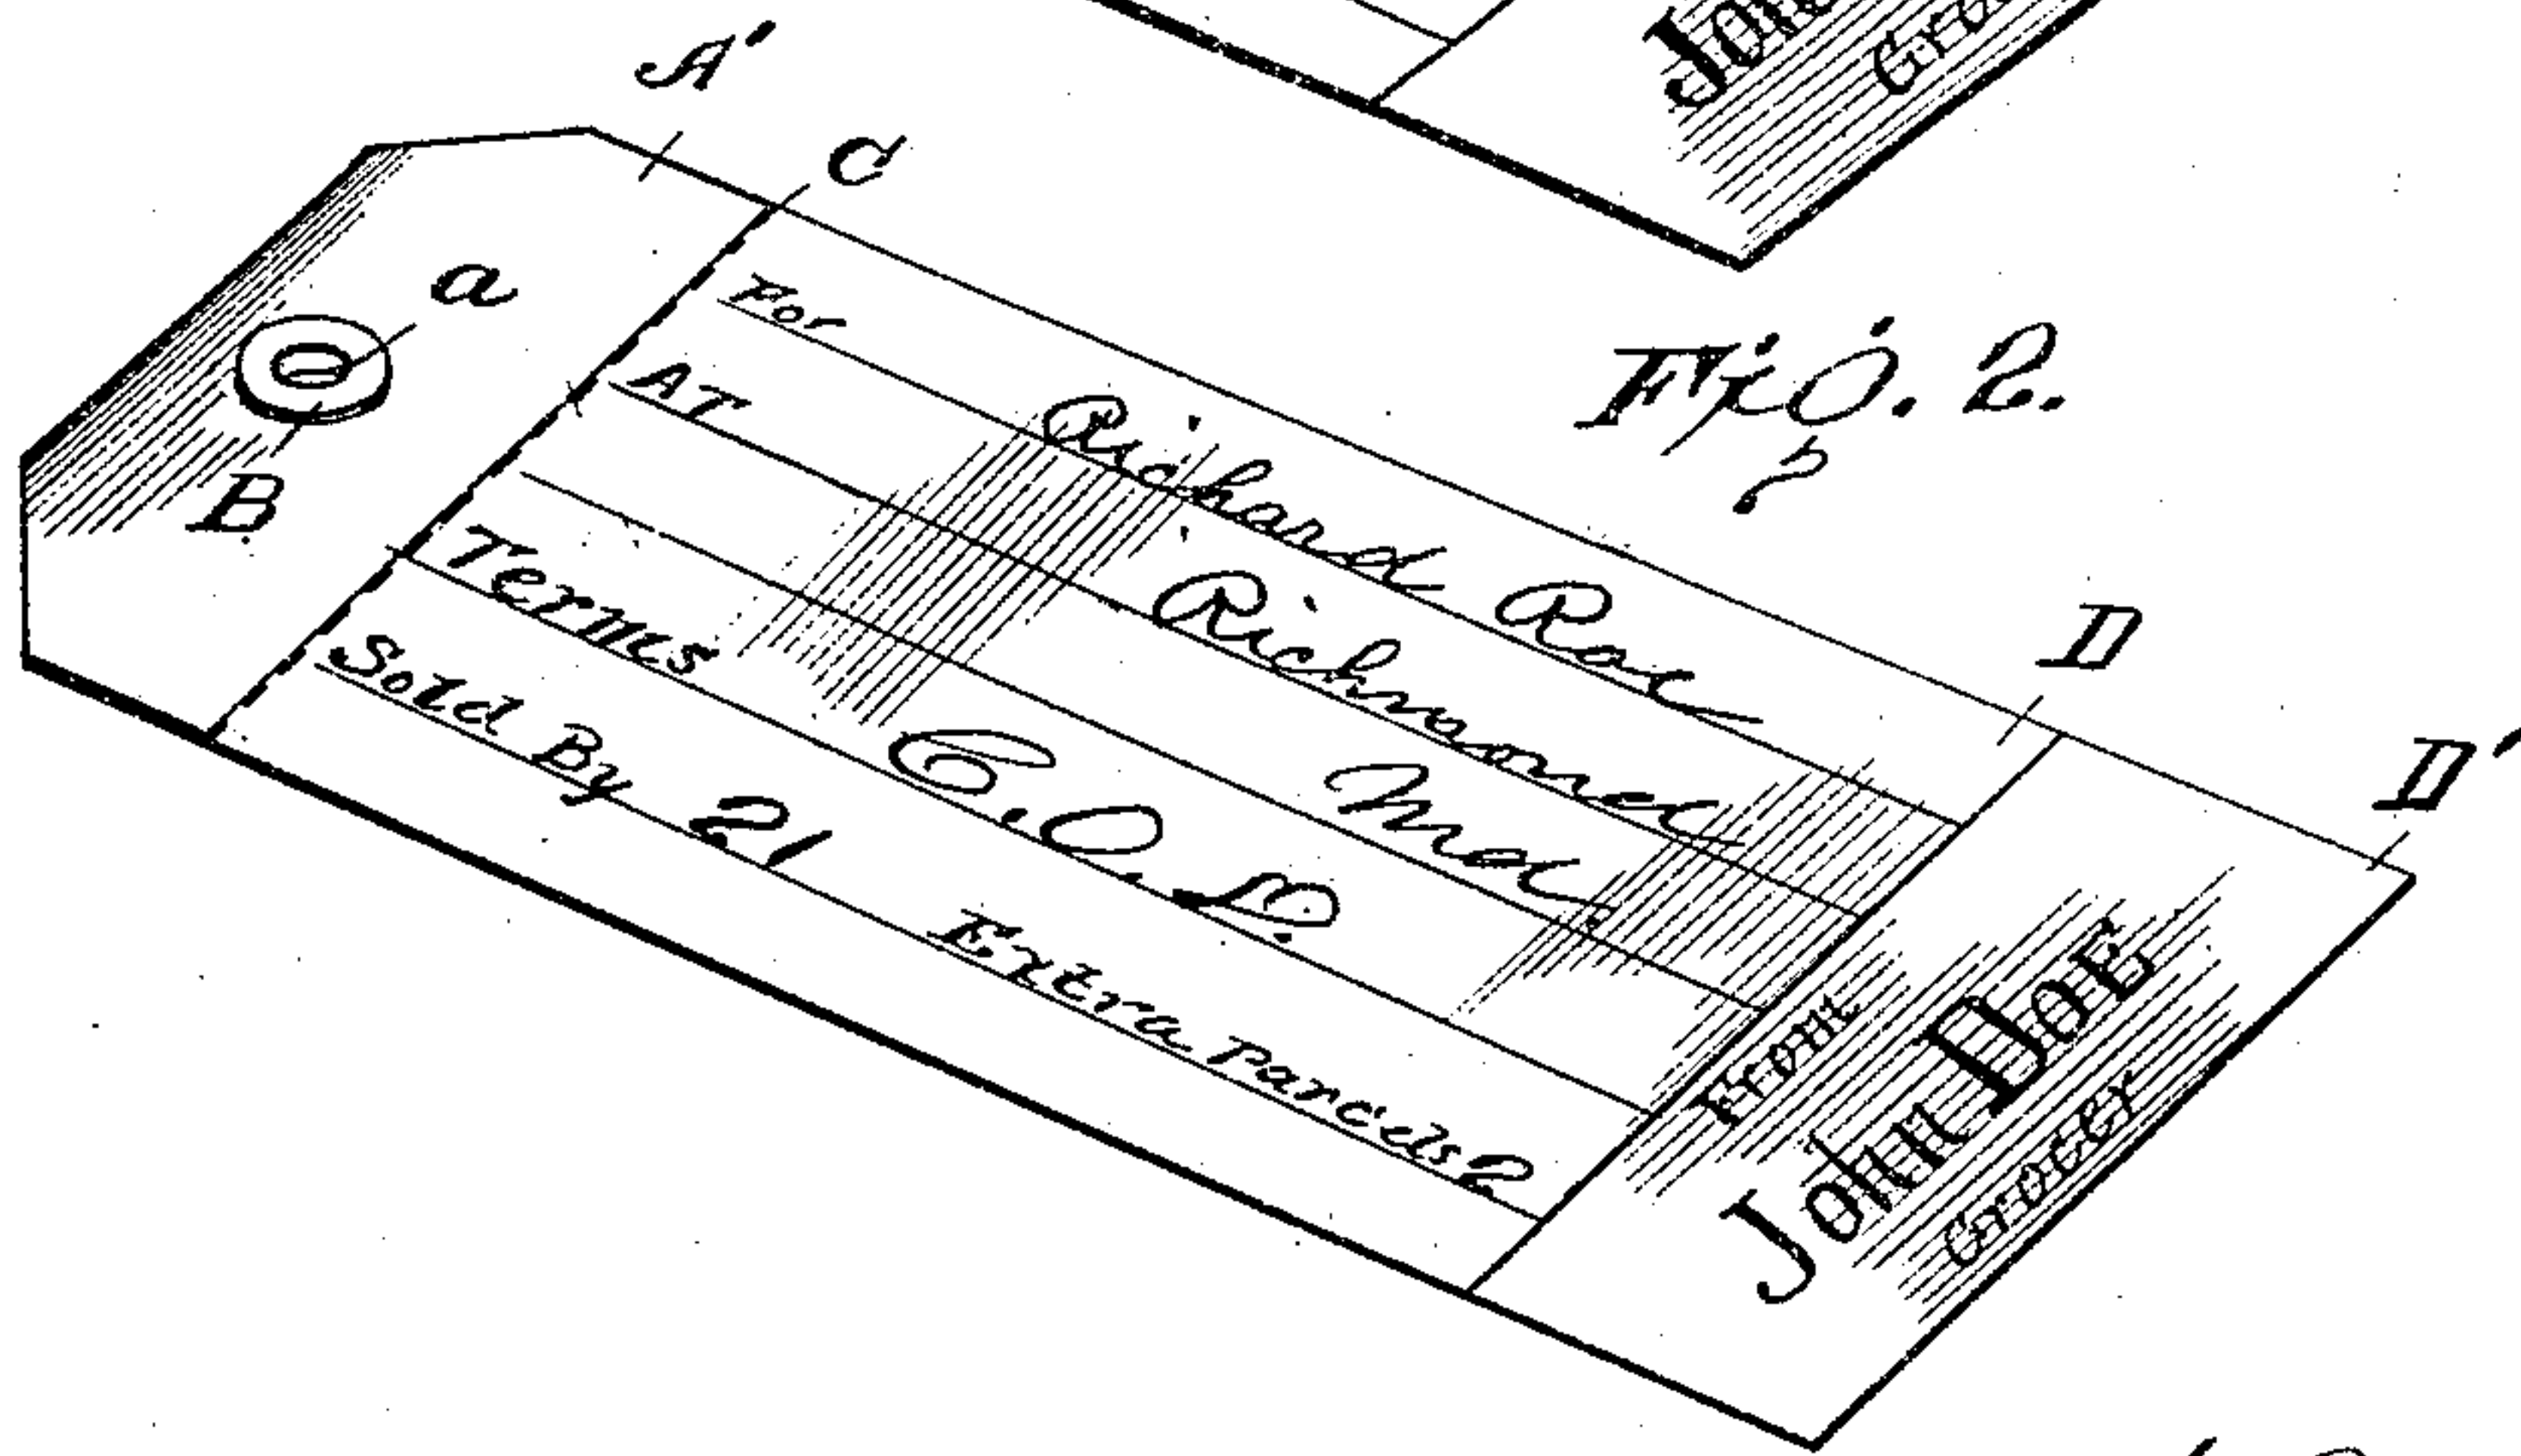 A'
C
a
B
For Richard Roe
AT Richmond
Ind.
Terms C.O.D.
Sold By 21 Extra Parcels 2
FIG. 2.
D
D'
From
JOHN DOE
Grocer